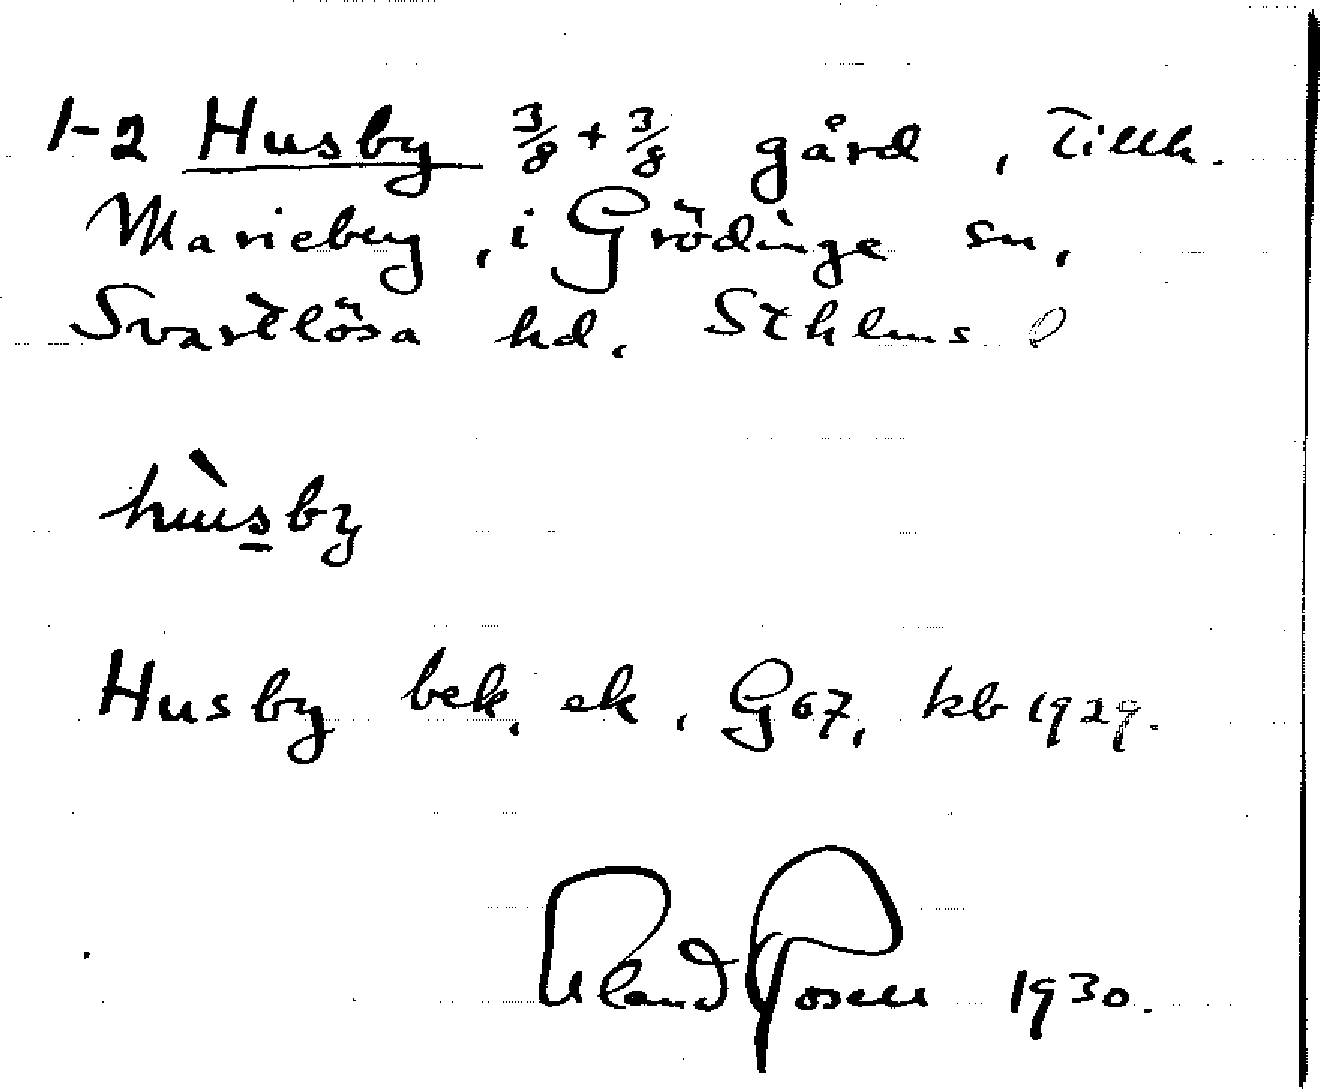 1-2 Husby 3/8 + 3/8 gård, Tillh.
Marieberg, i Grödinge sn,
Svartlösa hd. Sthlms l
hùsby
Husby bek. ek. G67, kb 1929.
1930.